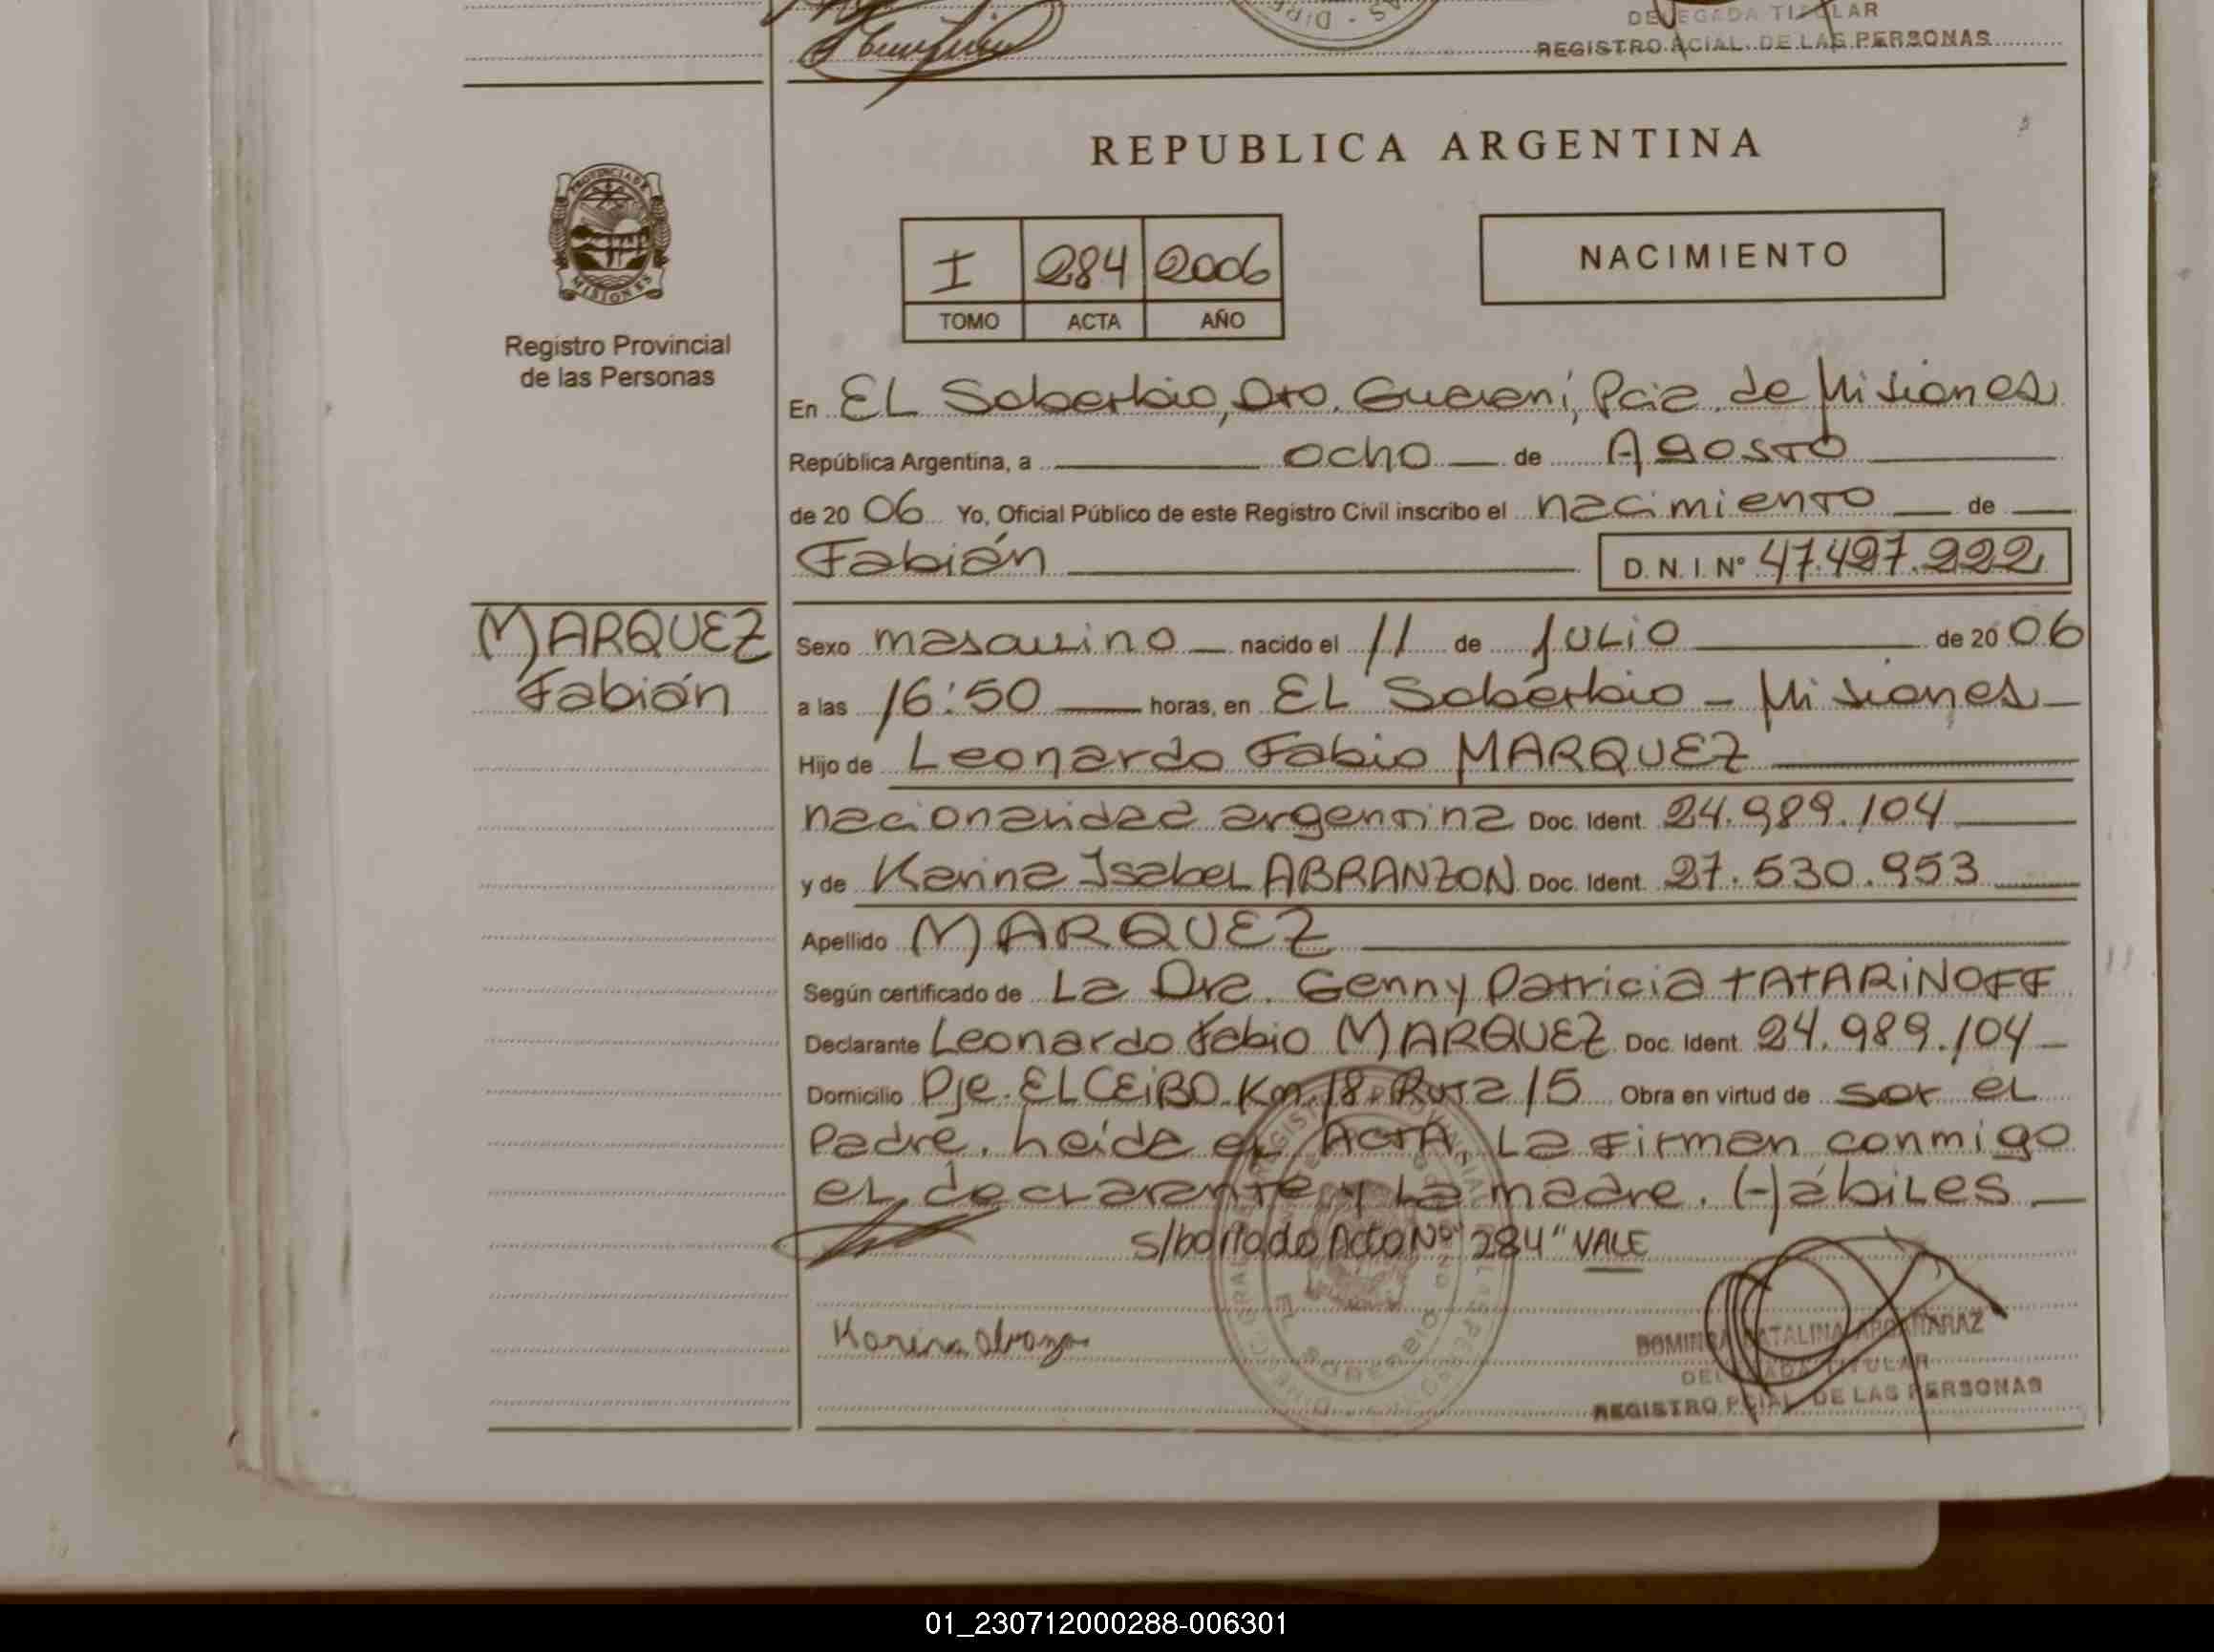 DELEGADA TITULAR
REGISTRO PCIAL. DE LAS PERSONAS
REPUBLICA ARGENTINA
PROVINCIA DE
MISIONES
Registro Provincial
de las Personas
I 284 2006
TOMO ACTA AÑO
NACIMIENTO
En EL Soberbio, Dto. Guaraní, Pcia. de Misiones
República Argentina, a ocho de Agosto
de 20 06 Yo, Oficial Público de este Registro Civil inscribo el nacimiento de
Fabián D. N. I. Nº 47.497.222
MARQUEZ
Fabián
Sexo masculino nacido el 11 de Julio de 20 06
a las 16:50 horas, en EL Soberbio - Misiones
Hijo de Leonardo Fabio MARQUEZ
nacionalidad argentina Doc. Ident. 24.989.104
y de Karina Isabel ABRANZON Doc. Ident. 27.530.953
Apellido MARQUEZ
Según certificado de La Dra. Genny Patricia TATARINOFF
Declarante Leonardo Fabio MARQUEZ Doc. Ident. 24.989.104
Domicilio Pje. EL CEiBO Km 18 Ruta 15 Obra en virtud de ser el
Padre. heida el ACTA, La Firman conmigo
el declarante y La madre. Hábiles
S/borrado Acta Nº "284" VALE
Karina
CATALINA
DELEGADA TITULAR
REGISTRO PCIAL. DE LAS PERSONAS
01_230712000288-006301